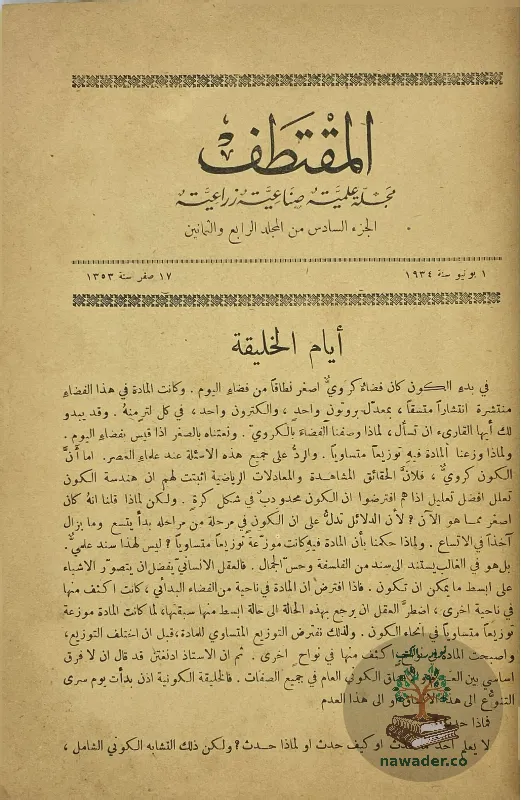 المقتطف
مجلة علمية صناعية زراعية
الجزء السادس من المجلد الرابع والثمانين
١ يونيو سنة ١٩٣٤
١٧ صفر سنة ١٣٥٣
أيام الخليقة
في بدء الكون كان فضاء كرويٌّ اصغر نطاقاً من فضاء اليوم . وكانت المادة في هذا الفضاء
منتشرة انتشاراً متسقاً ، بمعدل بروتون واحد ، والكترون واحد ، في كل لتر منهُ . وقد يبدو
لك أيها القارىء ان تسأل ، لماذا وصفنا الفضاء بالكرويّ . ونعتناه بالصغر اذا قيس بفضاء اليوم .
ولماذا وزعنا المادة فيهِ توزيعاً متساوياً . والردُّ على جميع هذه الاسئلة عند علماء العصر. اما أنَّ
الكون كرويٌّ ، فلأنَّ الحقائق المشاهدة والمعادلات الرياضية اثبتت لهم ان هندسة الكون
تعلل افضل تعليل اذا هم افترضوا ان الكون محدودبٌ في شكل كرة . ولكن لماذا قلنا انهُ كان
اصغر مما هو الآن ؟ لأن الدلائل تدلُّ على ان الكون في مرحلة من مراحله بدأ يتسع وما يزال
آخذاً في الاتساع . ولماذا حكمنا بأن المادة فيهِ كانت موزعة توزيعاً متساوياً ؟ ليس لهذا سند علميٌّ.
بل هو في الغالب يستند الى سند من الفلسفة وحسّ الجمال . فالعقل الانسانيُّ يفضل ان يتصوّر الاشياء
على ابسط ما يمكن ان تكون . فاذا افترض ان المادة في ناحية من الفضاء البدأئي ، كانت اكثف منها
في ناحية اخرى ، اضطرَّ العقل ان يرجع بهذه الحالة الى حالة ابسط منها سبقتها، لما كانت المادة موزعة
توزيعاً متساوياً في انحاء الكون . ولذلك نفترض التوزيع المتساوي للمادة، قبل ان اختلف التوزيع،
واصبحت المادة في نواحٍ اكثف منها في نواحٍ اخرى . ثم ان الاستاذ ادنغتن قد قال ان لا فرق
اساسي بين العدم الكوني العام في جميع الصفات . فالخليقة الكونية اذن بدأت يوم سرى
التنوُّع الى هذا او الى هذا العدم
فماذا حدث
لا يعلم احد حدث او كيف حدث او لماذا حدث ؟ ولكن ذلك التشابه الكوني الشامل ،
nawader.co